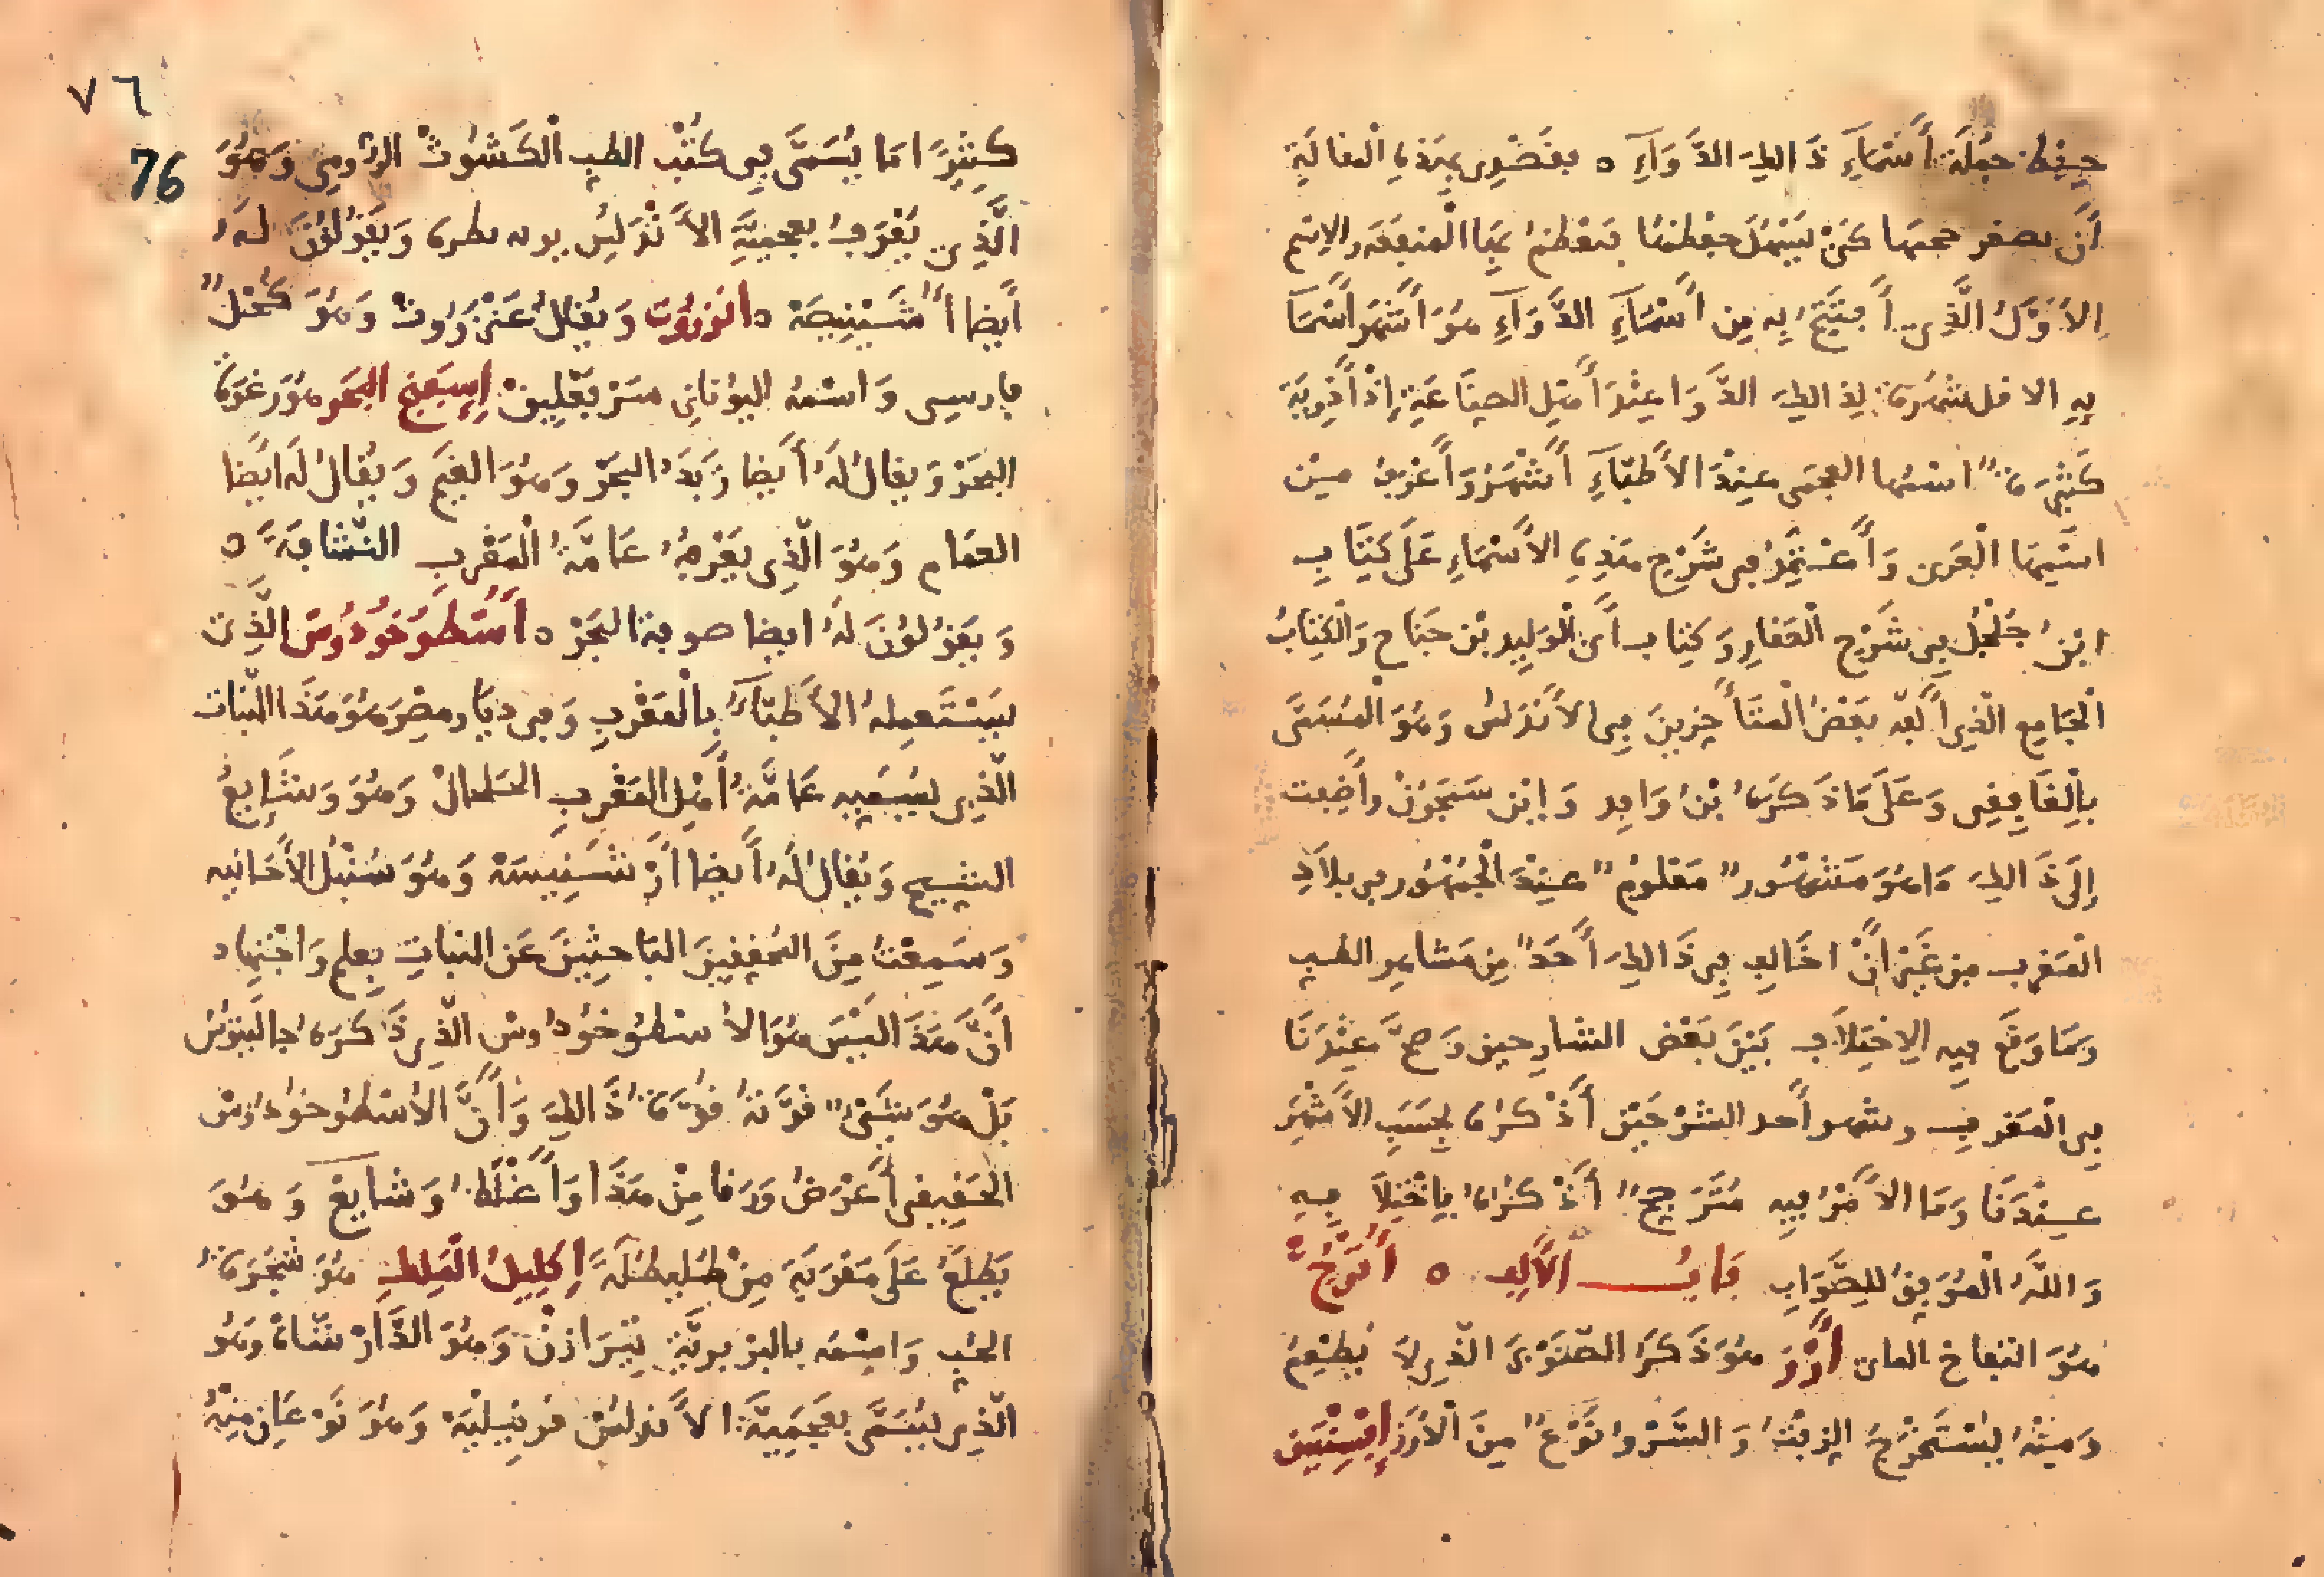 حفظ جملة أسماء ذالك الدوآء ٥ بغصدى بهذه المقالة
أن يصغر حجمها كي يسهل حفظها فتعظم بها المنفعة والاسم
الأول الذي أفتتح به من أسمآء الدوآء هو أشهر أسما
به الا قل شهرة لذالك الدوا عند أهل الصناعة إذ أدوية
كثيرة اسمها العجمى عند الأطبآء أشهر وأعرف من
اسمها العربى وأعتمد في شرح هذه الأسماء على كتاب
ابن جلجل في شرح العقار وكتاب أبي الوليد بن جناح والكتاب
الجامع الذي ألفه بعض المتأخرين في الأندلس وهو المسمى
بالغافقى وعلى ماذكره بن وافد وابن سمجون وأضفت
إلى ذالك ما هو مشهور معلوم عند الجمهور في بلاد
المغرب من غير أن اخالف في ذالك أحد من مشاهير الطب
وما وقع فيه الاختلاف بين بعض الشارحين وصح عندنا
في المغرب وشهر أحد الشرحين أذكره بحسب الأشهر
عندنا وما الأمر فيه مترجح أذكره باختلا فيه
والله الموفق للصواب باب الألف ٥ أترج
هو التفاخ الماى أرز هو ذكر الصنوبر الذي لا يطعم
ومنه يستخرج الزبت والسرو نوع من الأرز إفسنتين
٧٦
76
كثيرا ما يسمى في كتب الطب الكشوث الرومي وهو
الذي يعرف بعجمية الأندلس ويقولون له
أيضا أشسينيصة ٥ انزروت ويقال عنزروت وهو كحل
فارسى واسمه اليونانى إسفنج البحر هو رغوة
البحر ويقال له أيضا زبد البحر وهو الغيم ويقال له ايضا
الغمام وهو الذي يعرفه عامة المغرب النشافة ٥
ويقولون له ايضا صوفة البحر ٥ أسطوخودوس الذي
يستعمله الأطبآء بالمغرب وفي ديار مصر هو هذا النبات
الذي يسميه عامة أهل المغرب الحلحال وهو وشايع
الشيح ويقال له أيضا أرشنيسة وهو سنبل الأخانيه
وسمعت من المحققين الباحثين عن النبات بعلم واجتهاد
أن هذا ليس هو الأسطوخودوس الذي ذكره جالينوس
بل هو شيء قوته قوة ذالك وأن الأسطوخودوس
الحقيقي أعرض ورقا من هذا وأغلظ وشايع وهو
يطلع على مقربة من طليطلة إكليل الملك هو شجرة
الحب واسمه بالبربرية وهو الدارشاة وهو
الذي يسمى بعجمية الأندلس قرنيلية وهو نوعان منه